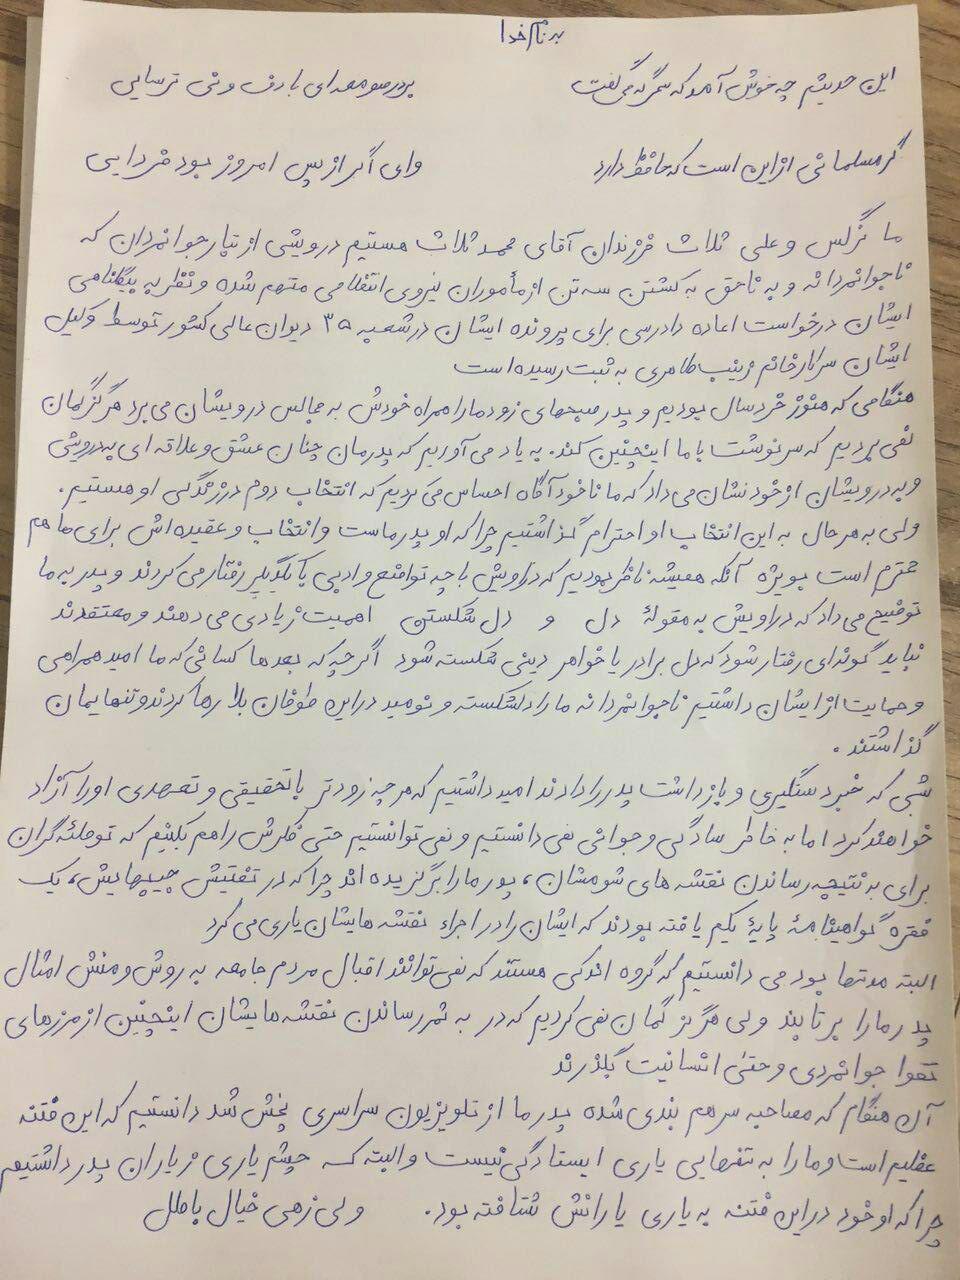 به نام خدا
این حدیثم چه خوش آمد که سحرگه می گفت بر در میکده ای با دف و نی ترسایی
گر مسلمانی از این است که حافظ دارد وای اگر از پس امروز بود فردایی
ما نرگس و علی ثلاث فرزندان آقای محمد ثلاث هستیم درویشی از تبار جوانمردان که
ناجوانمردانه و به ناحق به کشتن سه تن از مأموران نیروی انتظامی متهم شده و نظر به بیگناهی
ایشان درخواست اعاده دادرسی برای پرونده ایشان در شعبه ۳۵ دیوان عالی کشور توسط وکیل
ایشان سرکار خانم زینب طاهری به ثبت رسیده است
هنگامی که هنوز خردسال بودیم و پدر صبحهای زود ما را همراه خودش به مجالس درویشان می برد هرگز گمان
نمی بردیم که سرنوشت با ما اینچنین کند. به یاد می آوریم که پدرمان چنان عشق و علاقه ای به درویشی
و به درویشان از خود نشان می داد که ما ناخودآگاه احساس می کردیم که انتخاب دوم در زندگی او هستیم.
ولی به هر حال به این انتخاب او احترام گذاشتیم چرا که او پدر ماست و انتخاب و عقیده اش برای ما هم
محترم است بویژه آنکه همیشه ناظر بودیم که دراویش با چه تواضع و ادبی با یکدیگر رفتار می کردند و پدر به ما
توضیح می داد که دراویش به مقولهٔ دل و دل شکستن اهمیت زیادی می دهند و معتقدند
نباید گونه ای رفتار شود که دل برادر یا خواهر دینی شکسته شود اگرچه که بعدها کسانی که ما امید همراهی
و حمایت از ایشان داشتیم ناجوانمردانه ما را دلشکسته و نومید در این طوفان بلا رها کردند و تنهایمان
گذاشتند.
شبی که خبر دستگیری و بازداشت پدر را دادند امید داشتیم که هر چه زودتر با تحقیقی و تعهدی او را آزاد
خواهند کرد اما به خاطر سادگی و جوانی نمی دانستیم و نمی توانستیم حتی فکرش را هم بکنیم که توطئه گران
برای به نتیجه رساندن نقشه های شومشان، پدر ما را برگزیده اند چرا که در تفتیش جیبهایش، یک
فقره گواهینامهٔ پایهٔ یکم یافته بودند که ایشان را در اجراء نقشه هایشان یاری می کرد
البته مدتها بود می دانستیم که گروه اندکی هستند که نمی توانند اقبال مردم جامعه به روش و منش امثال
پدر ما را برتابند ولی هرگز گمان نمی کردیم که در به ثمر رساندن نقشه هایشان اینچنین از مرزهای
تقوا جوانمردی و حتی انسانیت بگذرند
آن هنگام که مصاحبه سرهم بندی شده پدر ما از تلویزیون سراسری پخش شد دانستیم که این فتنه
عظیم است و ما را به تنهایی یاری ایستادگی نیست و البته که چشم یاری ز یاران پدر داشتیم
چرا که او خود در این فتنه به یاری یارانش شتافته بود. ولی زهی خیال باطل